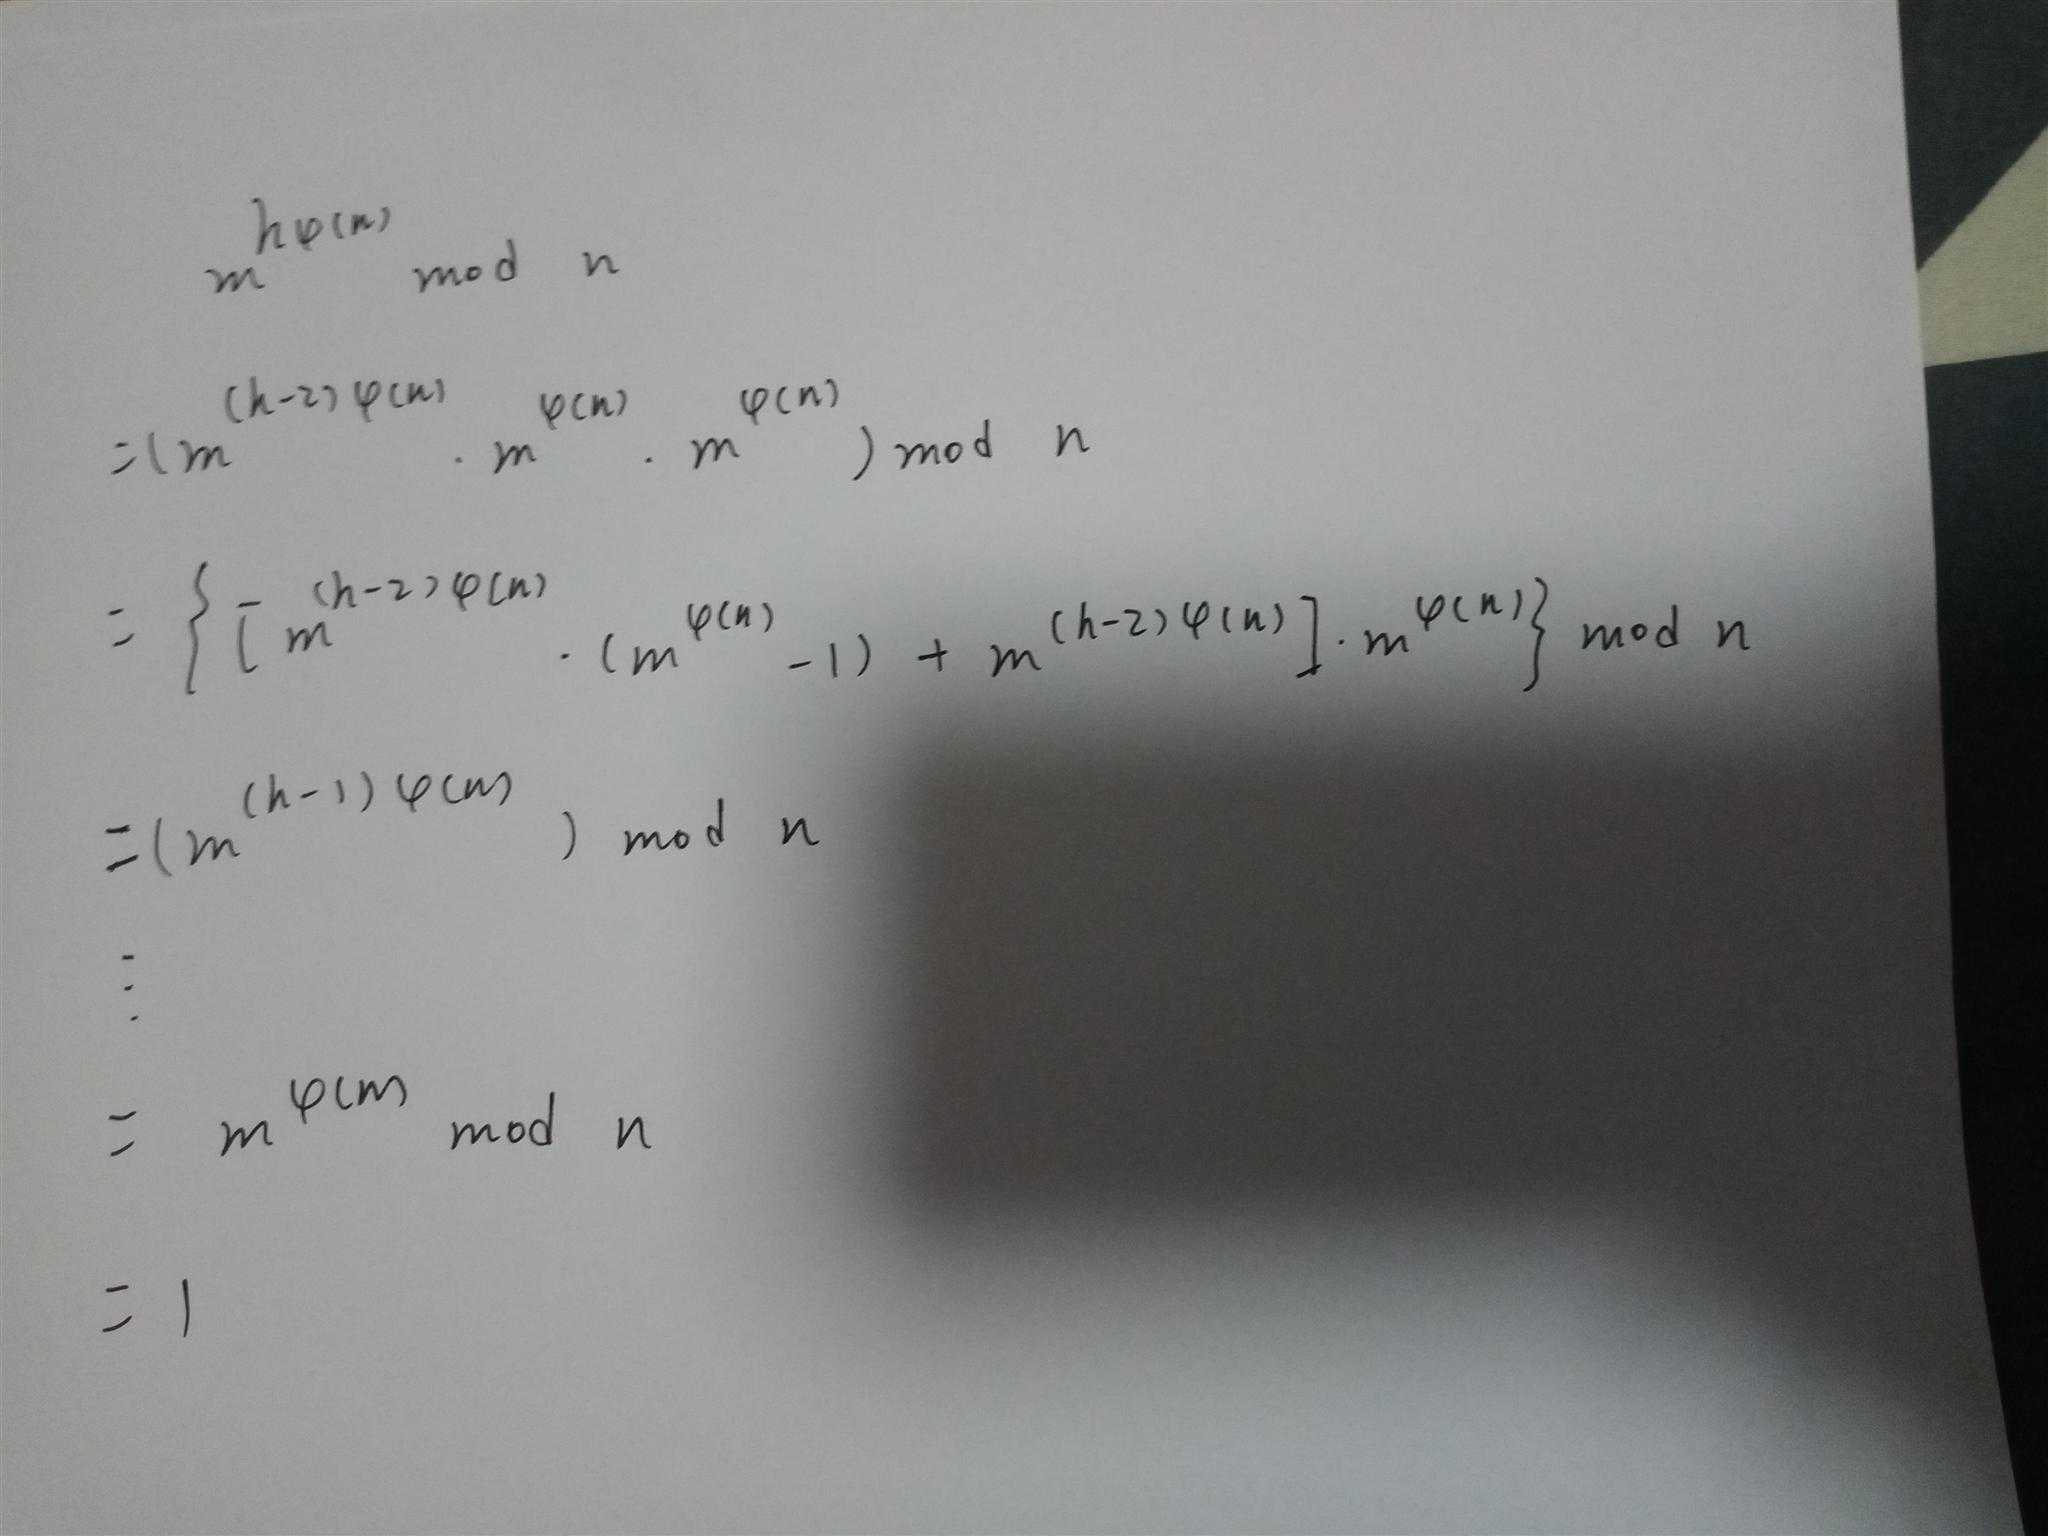 m^{hφ(n)} mod n
=(m^{(h-2)φ(n)} · m^{φ(n)} · m^{φ(n)}) mod n
= {[m^{(h-2)φ(n)} · (m^{φ(n)} -1) + m^{(h-2)φ(n)}] · m^{φ(n)}} mod n
=(m^{(h-1)φ(n)}) mod n
⋮
= m^{φ(n)} mod n
= 1